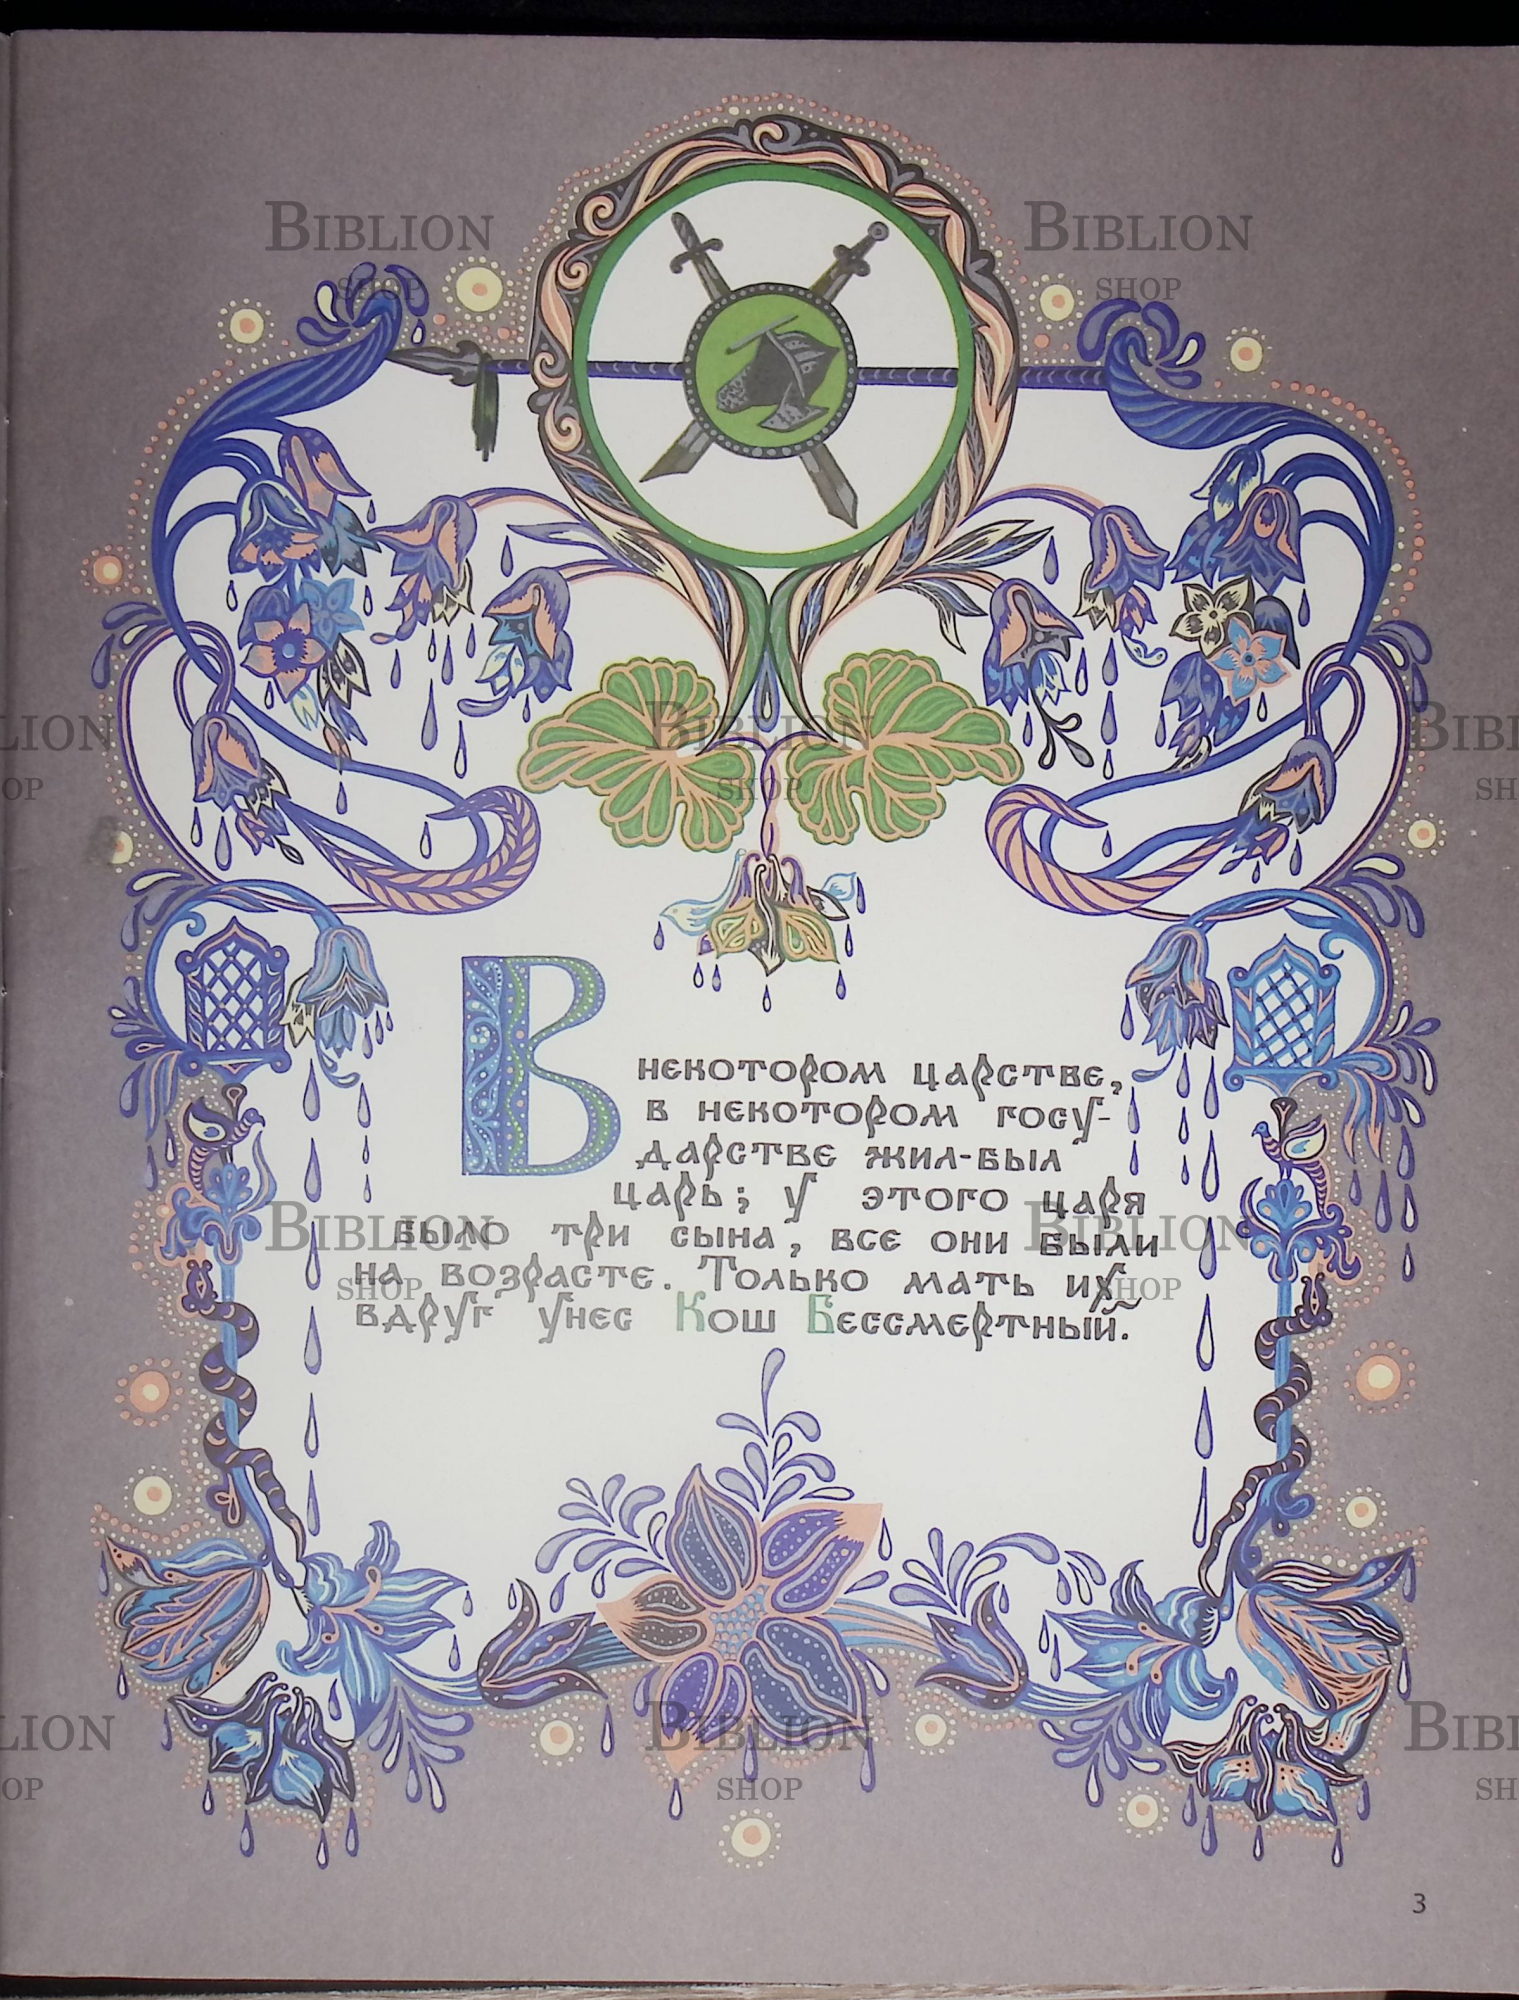 В некотором царстве,
в некотором госу-
дарстве жил-был
царь; у этого царя
было три сына, все они были
на возрасте. Только мать их
вдруг унес Кош Бессмертный.
3
BIBLION SHOP
BIBLION SHOP
BIBLION SHOP
BIBLION SHOP
BIBLION SHOP
BIBLION SHOP